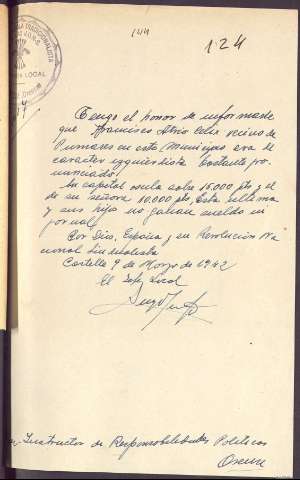 144
124
TRADICIONALISTA
J.O.N.S.
LOCAL
Tengo el honor de informarle
que Francisco Abrio Celes vecino de
Pumares en este Municipio era de
caracter izquierdista bastante pro
nunciado.
Su capital oscila sobre 15.000 pts y el
de su señora 10.000 pts, esta ultima
y sus hijos no ganan sueldo ni
jornal.
Por Dios, España y su Revolución Na
cional Sindicalista
Cartelle 9 de Marzo de 1942
El Jefe Local
Instructor de Responsabilidades Politicas
Orense